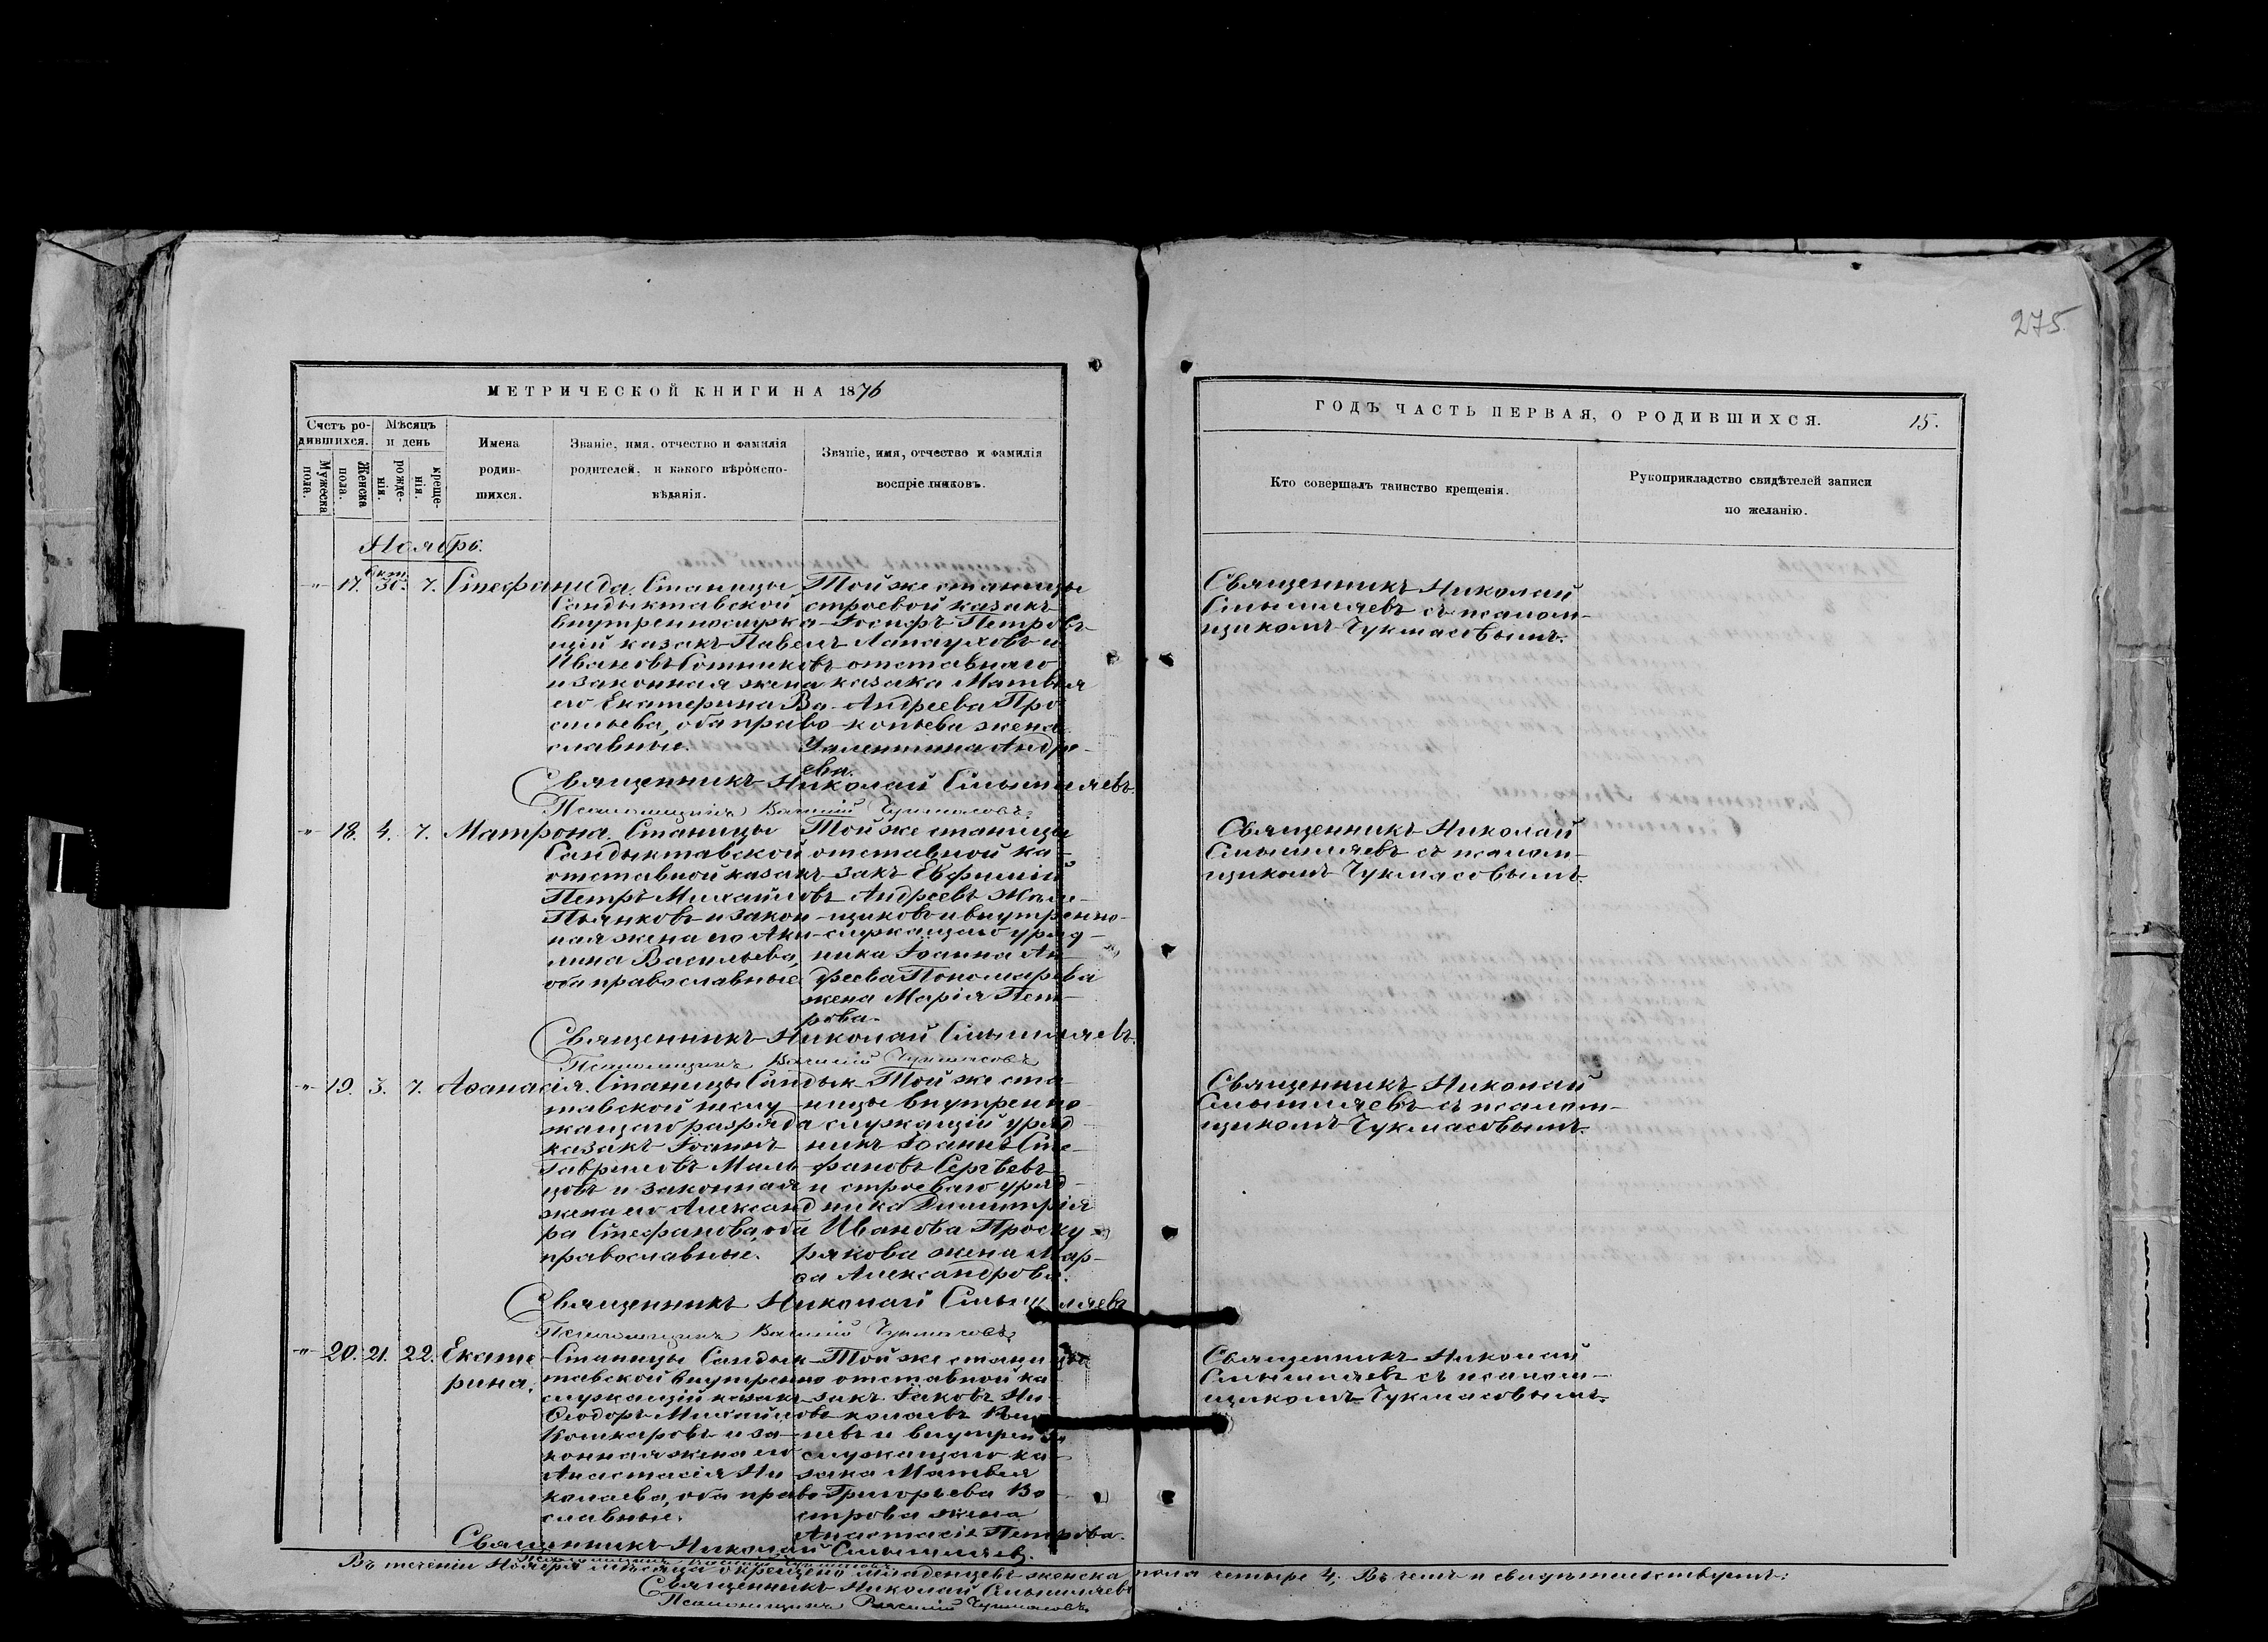 275
МЕТРИЧЕСКОЙ КНИГИ НА 1876
Счетъ ро-
дившихся.
Мужеска пола.
Женска пола.
Мѣсяцъ
и день
рожде-
нія.
креще-
нія.
Имена
родив-
шихся.
Званіе, имя, отчество и фамилія
родителей, и какого вѣроиспо-
вѣданія.
Званіе, имя, отчество и фамилія
воспріемниковъ.
ГОДЪ ЧАСТЬ ПЕРВАЯ, О РОДИВШИХСЯ.
15.
Кто совершалъ таинство крещенія.
Рукоприкладство свидѣтелей записи
по желанію.
Ноябрь.
-"- 17. Окт. 30. 7. Стефанида.
Станицы
Сандыктавской
внутреннослужа-
щій казакъ Павелъ
Ивановъ Сотниковъ
и законная жена
его Екатерина Ва-
сильева, оба право-
славные.
Той же станицы
строевой казакъ
Іосифъ Петровъ
Лапауховъ и
отставнаго
казака Матвѣя
Андреева Про-
копьева жена
Андре-
ева.
Священникъ Николай
Смышляевъ съ псалом-
щикомъ Чукмасовымъ.
Священникъ Николай Смышляевъ.
Псаломщикъ Василій Чукмасовъ.
-"- 18. 4. 7. Матрона.
Станицы
Сандыктавской
отставной казакъ
Петръ Михайловъ
Пьянковъ и закон-
ная жена его Аку-
лина Васильева,
оба православные
Той же станицы
отставной ка-
закъ Евфимій
Андреевъ
щиковъ и внутренно-
служащаго уряд-
ника Іоанна Ан-
дреева Пономарева
жена Марія Пет-
рова.
Священникъ Николай
Смышляевъ съ псалом-
щикомъ Чукмасовымъ.
Священникъ Николай Смышляевъ.
Псаломщикъ Василій Чукмасовъ
-"- 19. 3. 7. Аѳанасія.
Станицы Сандык-
тавской неслу-
жащаго разряда
казакъ Іоаннъ
Гавриловъ Маль-
цовъ и законная
жена его Александ-
ра Стефанова, оба
православные.
Той же ста-
ницы внутренно-
служащій уряд-
никъ Іоаннъ Сте-
фановъ Сергѣевъ
и строеваго уряд-
ника Димитрія
Иванова Проску-
рякова жена Мар-
ѳа Александрова.
Священникъ Николай
Смышляевъ съ псалом-
щикомъ Чукмасовымъ.
Священникъ Николай Смышляевъ
Псаломщикъ Василій Чукмасовъ.
-"- 20. 21. 22. Екате-
рина.
Станицы Сандык-
тавской внутренно
служащій казакъ
Ѳеодоръ Михайловъ
Кошкаровъ и за-
конная жена его
Анастасія Ни-
колаева, оба право-
славные.
Той же станицы
отставной ка-
закъ Іаковъ Ни-
колаевъ
невъ и внутренно
служащаго ка-
зака Матвѣя
Григорьева Во-
строва жена
Анастасія Петрова.
Священникъ Николай
Смышляевъ съ псалом-
щикомъ Чукмасовымъ.
Священникъ Николай Смышляевъ.
Псаломщикъ Василій Чукмасовъ.
Въ теченіи Ноября мѣсяца окрещено младенцевъ женска пола четыре 4; Въ чемъ и свидѣтельствуемъ:
Священникъ Николай Смышляевъ
Псаломщикъ Василій Чукмасовъ.